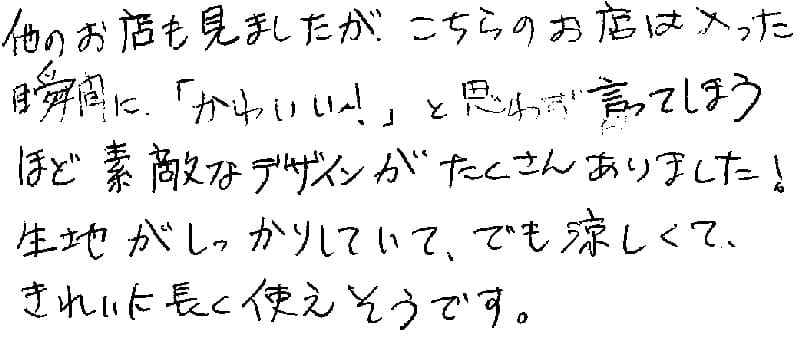 他のお店も見ましたが、こちらのお店は入った
瞬間に、「かわいい〜!」と思わず言ってしまう
ほど素敵なデザインがたくさんありました!
生地がしっかりしていて、でも涼しくて、
きれいに長く使えそうです。